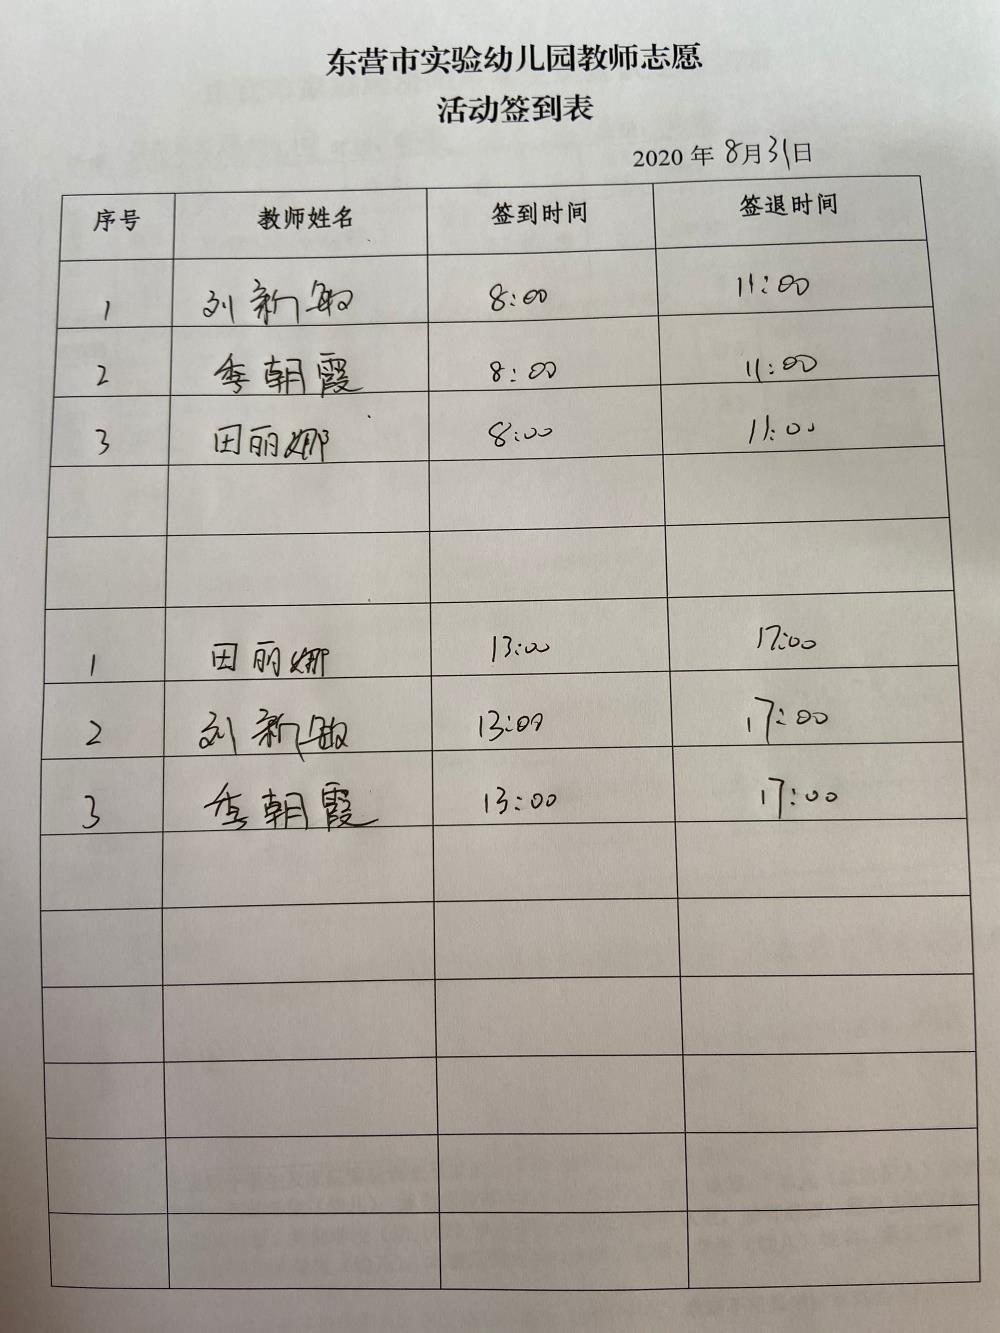 东营市实验幼儿园教师志愿
活动签到表
2020 年 8月31日
序号 教师姓名 签到时间 签退时间
1 刘新敏 8:00 11:00
2 季朝霞 8:00 11:00
3 田丽娜 8:00 11:00
1 田丽娜 13:00 17:00
2 刘新敏 13:00 17:00
3 季朝霞 13:00 17:00